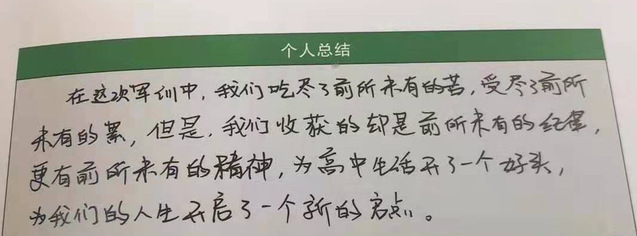 个人总结
在这次军训中，我们吃尽了前所未有的苦，受尽了前所
未有的累，但是，我们收获的却是前所未有的纪律，
更有前所未有的精神，为高中生活开了一个好头，
为我们的人生开启了一个新的启点。